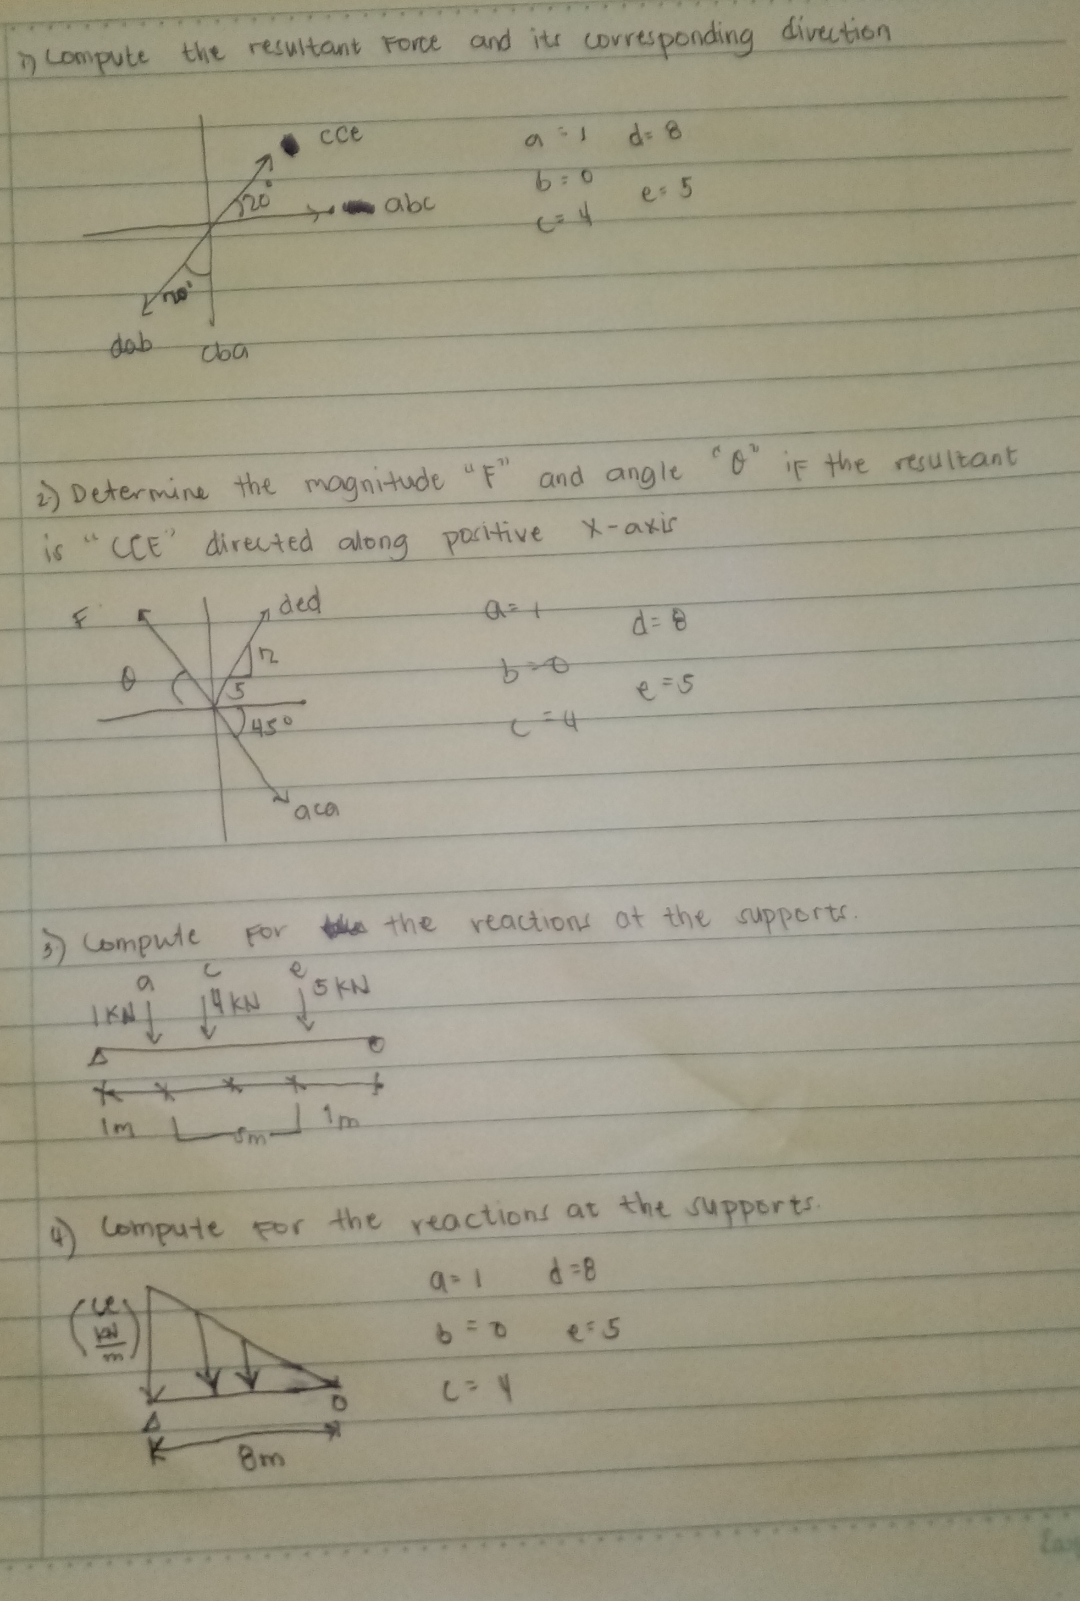 1) Compute the resultant Force and its corresponding direction
cce
a = 1 d= 8
20°
abc
b = 0 e= 5
c= 4
dab
cba
2) Determine the magnitude "F" and angle "θ" if the resultant
is "CCE" directed along positive x-axis
F
ded
a= 1 d= 8
12
θ
5
b = 0 e = 5
45°
c = 4
aca
3) Compute For the reactions at the supports.
a c e
1KN 4KN 5KN
1m
1m
4) Compute For the reactions at the supports.
a= 1 d=8
KN
m
b = 0 e= 5
c= 4
8m